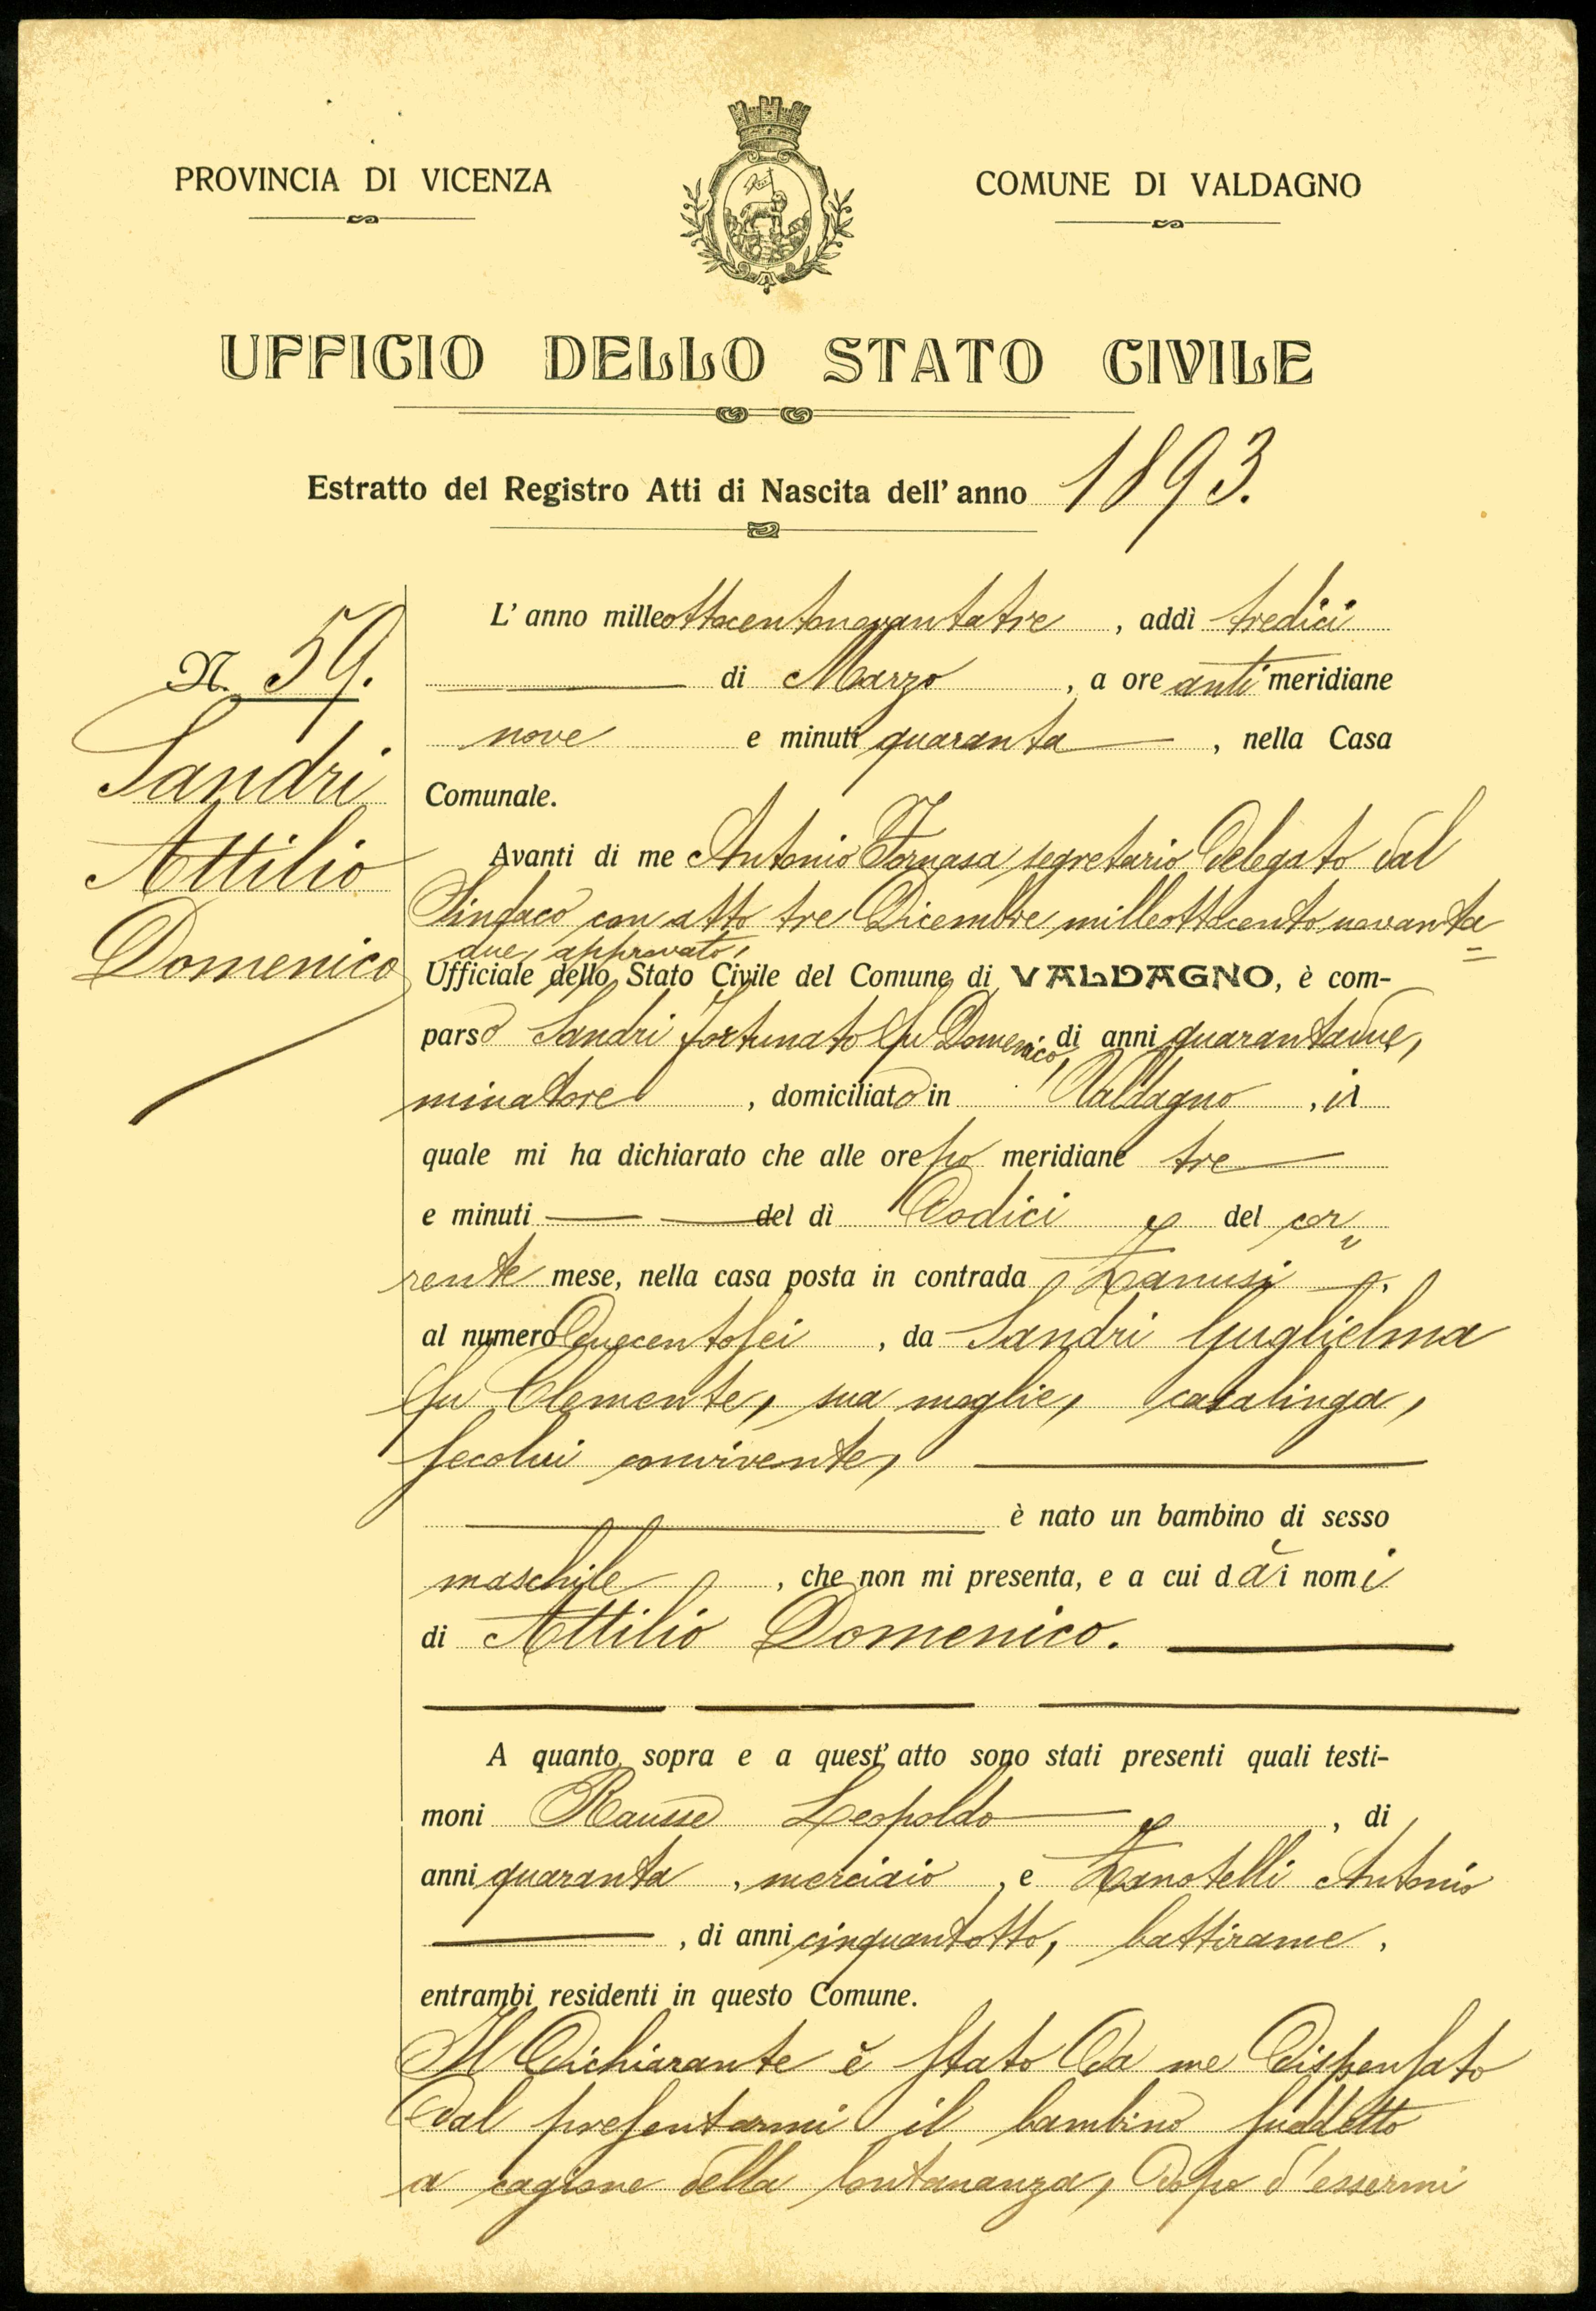 PROVINCIA DI VICENZA
COMUNE DI VALDAGNO
UFFICIO DELLO STATO CIVILE
Estratto del Registro Atti di Nascita dell' anno 1893.
N. 59.
Sandri
Attilio
Domenico
L' anno milleottocentonovantatre, addì tredici
di Marzo, a ore antimeridiane
nove e minuti quaranta, nella Casa
Comunale.
Avanti di me Antonio Fornasa segretario Delegato dal
Sindaco con atto tre Dicembre milleottocento novanta=
due, approvato,
Ufficiale dello Stato Civile del Comune di VALDAGNO, è com-
parso Sandri Fortunato fu Domenico, di anni quarantadue,
minatore, domiciliato in Valdagno, il
quale mi ha dichiarato che alle ore po meridiane tre
e minuti del dì Dodici del cor
rente mese, nella casa posta in contrada Zanusi,
al numero Duecentosei, da Sandri Guglielma
fu Clemente, sua moglie, casalinga,
secolui convivente,
è nato un bambino di sesso
maschile, che non mi presenta, e a cui dà i nomi
di Attilio Domenico.
A quanto sopra e a quest' atto sono stati presenti quali testi-
moni Rausse Leopoldo, di
anni quaranta, merciaio, e Zanotelli Antonio
, di anni cinquantotto, battirame,
entrambi residenti in questo Comune.
Il Dichiarante è stato Da me Dispensato
Dal presentarmi il bambino suddetto
a cagione della lontananza, Dopo d'essermi